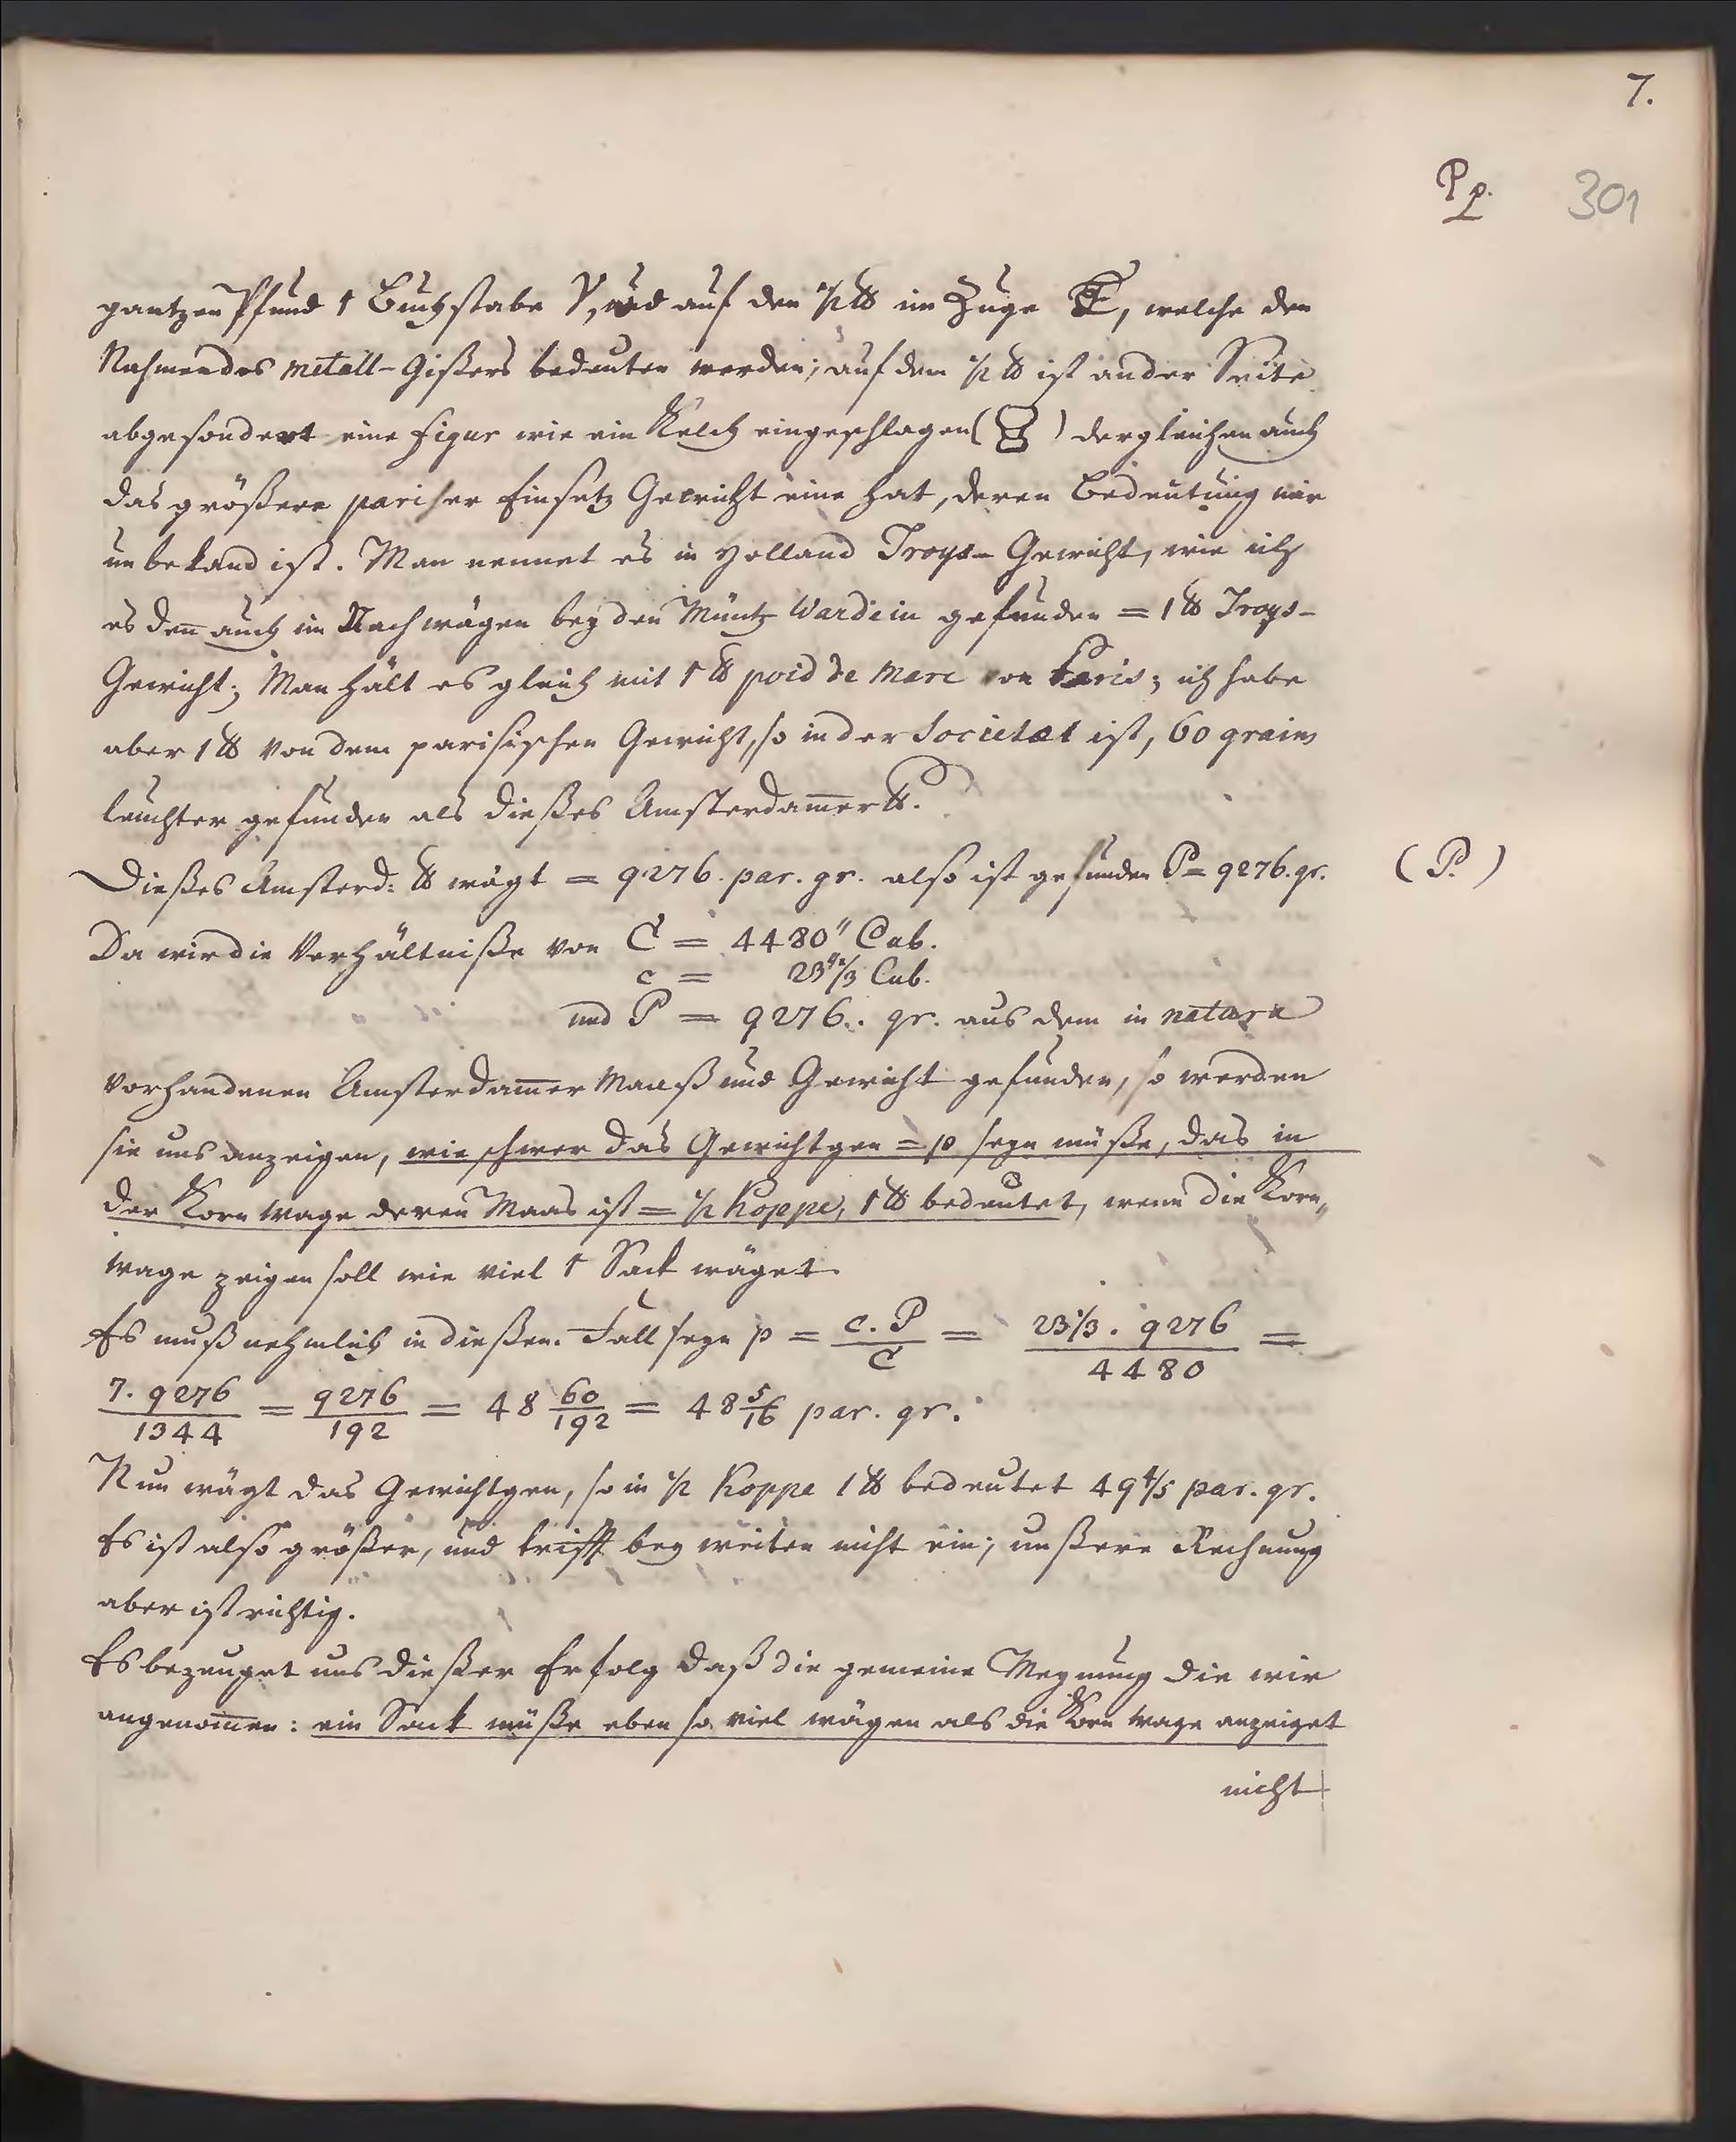 7.
Pp. 301
gantzen Pfund 1 Buchstabe V, und auf den 1/2 ℔ im Zuge, welche den
Nahmen des metall-Gißers bedeuten werden; auf dem 1/2 ℔ ist an der Seite
abgesondert eine Figur wie ein Kelch eingeschlagen ( ) dergleichen auch
das größere pariser Einsetz Gewicht eine hat, deren Bedeutung mir
unbekand ist. Man nennet es in Holland Troys-Gewicht, wie ich
es den̅ auch im Nachwägen bey den Müntz Wardein gefunden = 1 ℔ Troys-
Gewicht; Man hält es gleich mit 1 ℔ poid de Marc von Paris; ich habe
aber 1 ℔ von dem parisischen Gewicht, so in der Societæt ist, 60 grains
leichter gefunden als dießes Amsterdam̅er ℔.
Dießes Amsterd: ℔ wägt = 9276. par. gr. also ist gefunden P = 9276. gr. (P.)
Da wir die Verhältniße von C = 4480'' Cub.
c = 23''1/3 Cub.
und P = 9276. gr. aus dem in natura
vorhandenen Amsterdam̅er Maaß und Gewicht gefunden, so werden
sie uns anzeigen, wie schwer das Gewichtgen = p seyn müße, das in
der Korn wage deren Maas ist = 1/2 Koppe, 1 ℔ bedeutet, wenn die Korn„
wage zeigen soll wie viel 1 Sack wäget.
Es muß nehmlich in dießen Fall seyn p = c. P / C = 23 1/3. 9276 / 4480 =
7. 9276 / 1344 = 9276 / 192 = 48 60/192 = 48 5/16 par. gr.
Nun wägt das Gewichtgen, so in 1/2 Koppe 1 ℔ bedeutet 49 4/5 par. gr.
Es ist also größer, und trifft bey weiten nicht ein; unßere Rechnung
aber ist richtig.
Es bezeuget uns dießer Erfolg daß die gemeine Meynung die wir
angenom̅en: ein Sack müße eben so viel wägen als die Korn wage anzeiget
nicht